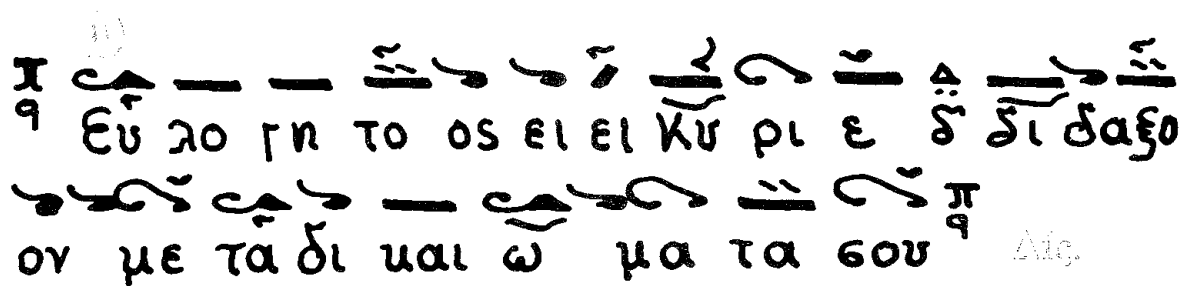 π Ευ λο γη το ος ει ει Κυ ρι ε δ δι δαξο
ον με τα δι και ω μα τα σου π Δίς.